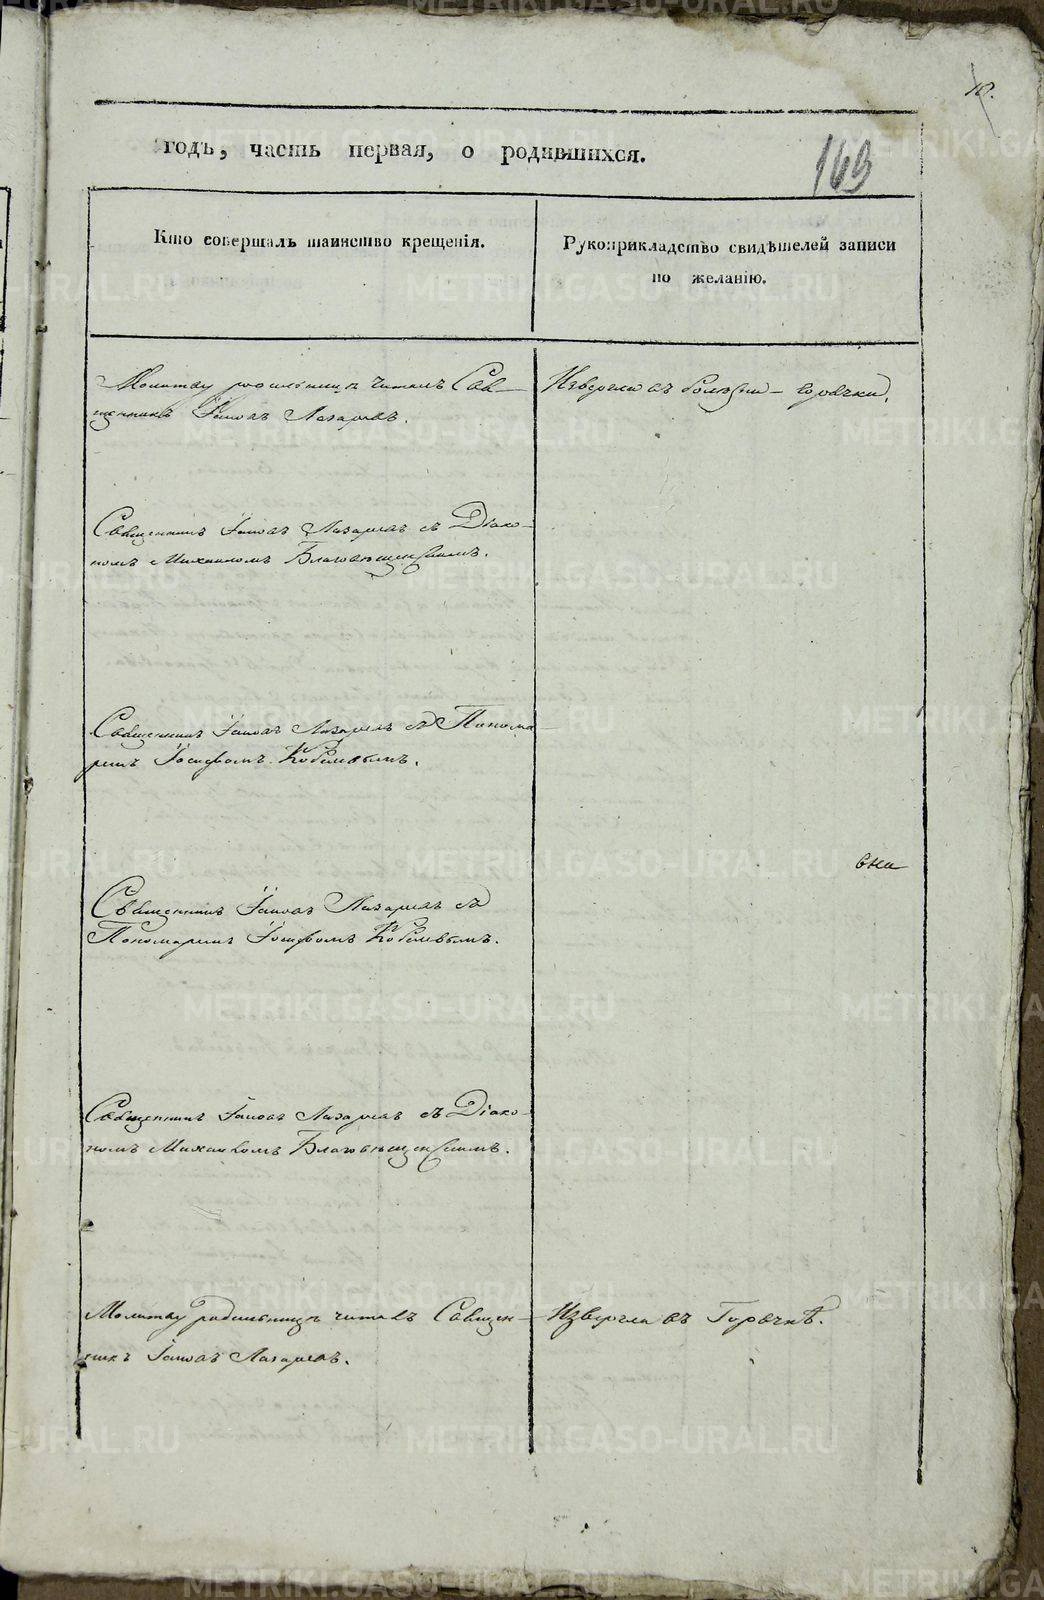 10.
163
годъ, часть первая, о родившихся.
Кто совершалъ таинство крещенія.
Рукоприкладство свидѣтелей записи
по желанію.
Молитву родильницѣ читалъ Свя-
щенникъ Іаковъ Лазаревъ.
Извергла въ болѣзни – горячки.
Священникъ Іаковъ Лазаревъ съ Діако-
номъ Михаиломъ Благовѣщенскимъ.
Священникъ Іаковъ Лазаревъ съ Понома-
ремъ Іосифомъ
Священникъ Іаковъ Лазаревъ съ
Пономаремъ Іосифомъ
Священникъ Іаковъ Лазаревъ съ Діако-
номъ Михаиломъ Благовѣщенскимъ.
Молитву родильницѣ читалъ Священ-
никъ Іаковъ Лазаревъ.
Извергла въ Горячкѣ.
METRIKI.GASO-URAL.RU